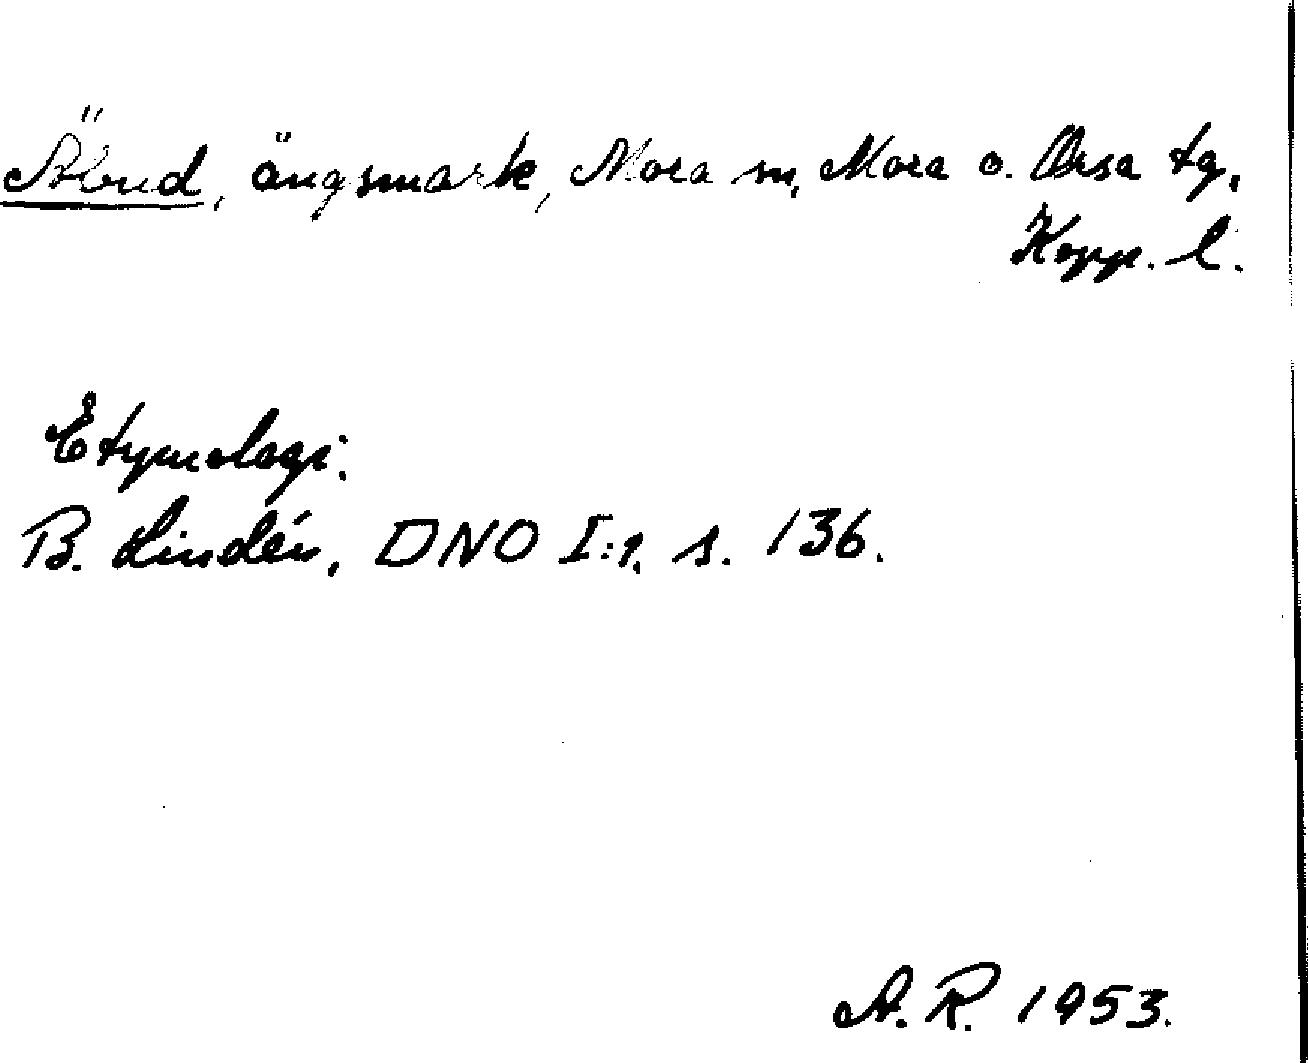 Äbud, ängsmark, Mora sn, Mora o. Orsa tg,
Kopp. l.
Etymologi:
B. Lindén, DNO I:1, s. 136.
A. R. 1953.